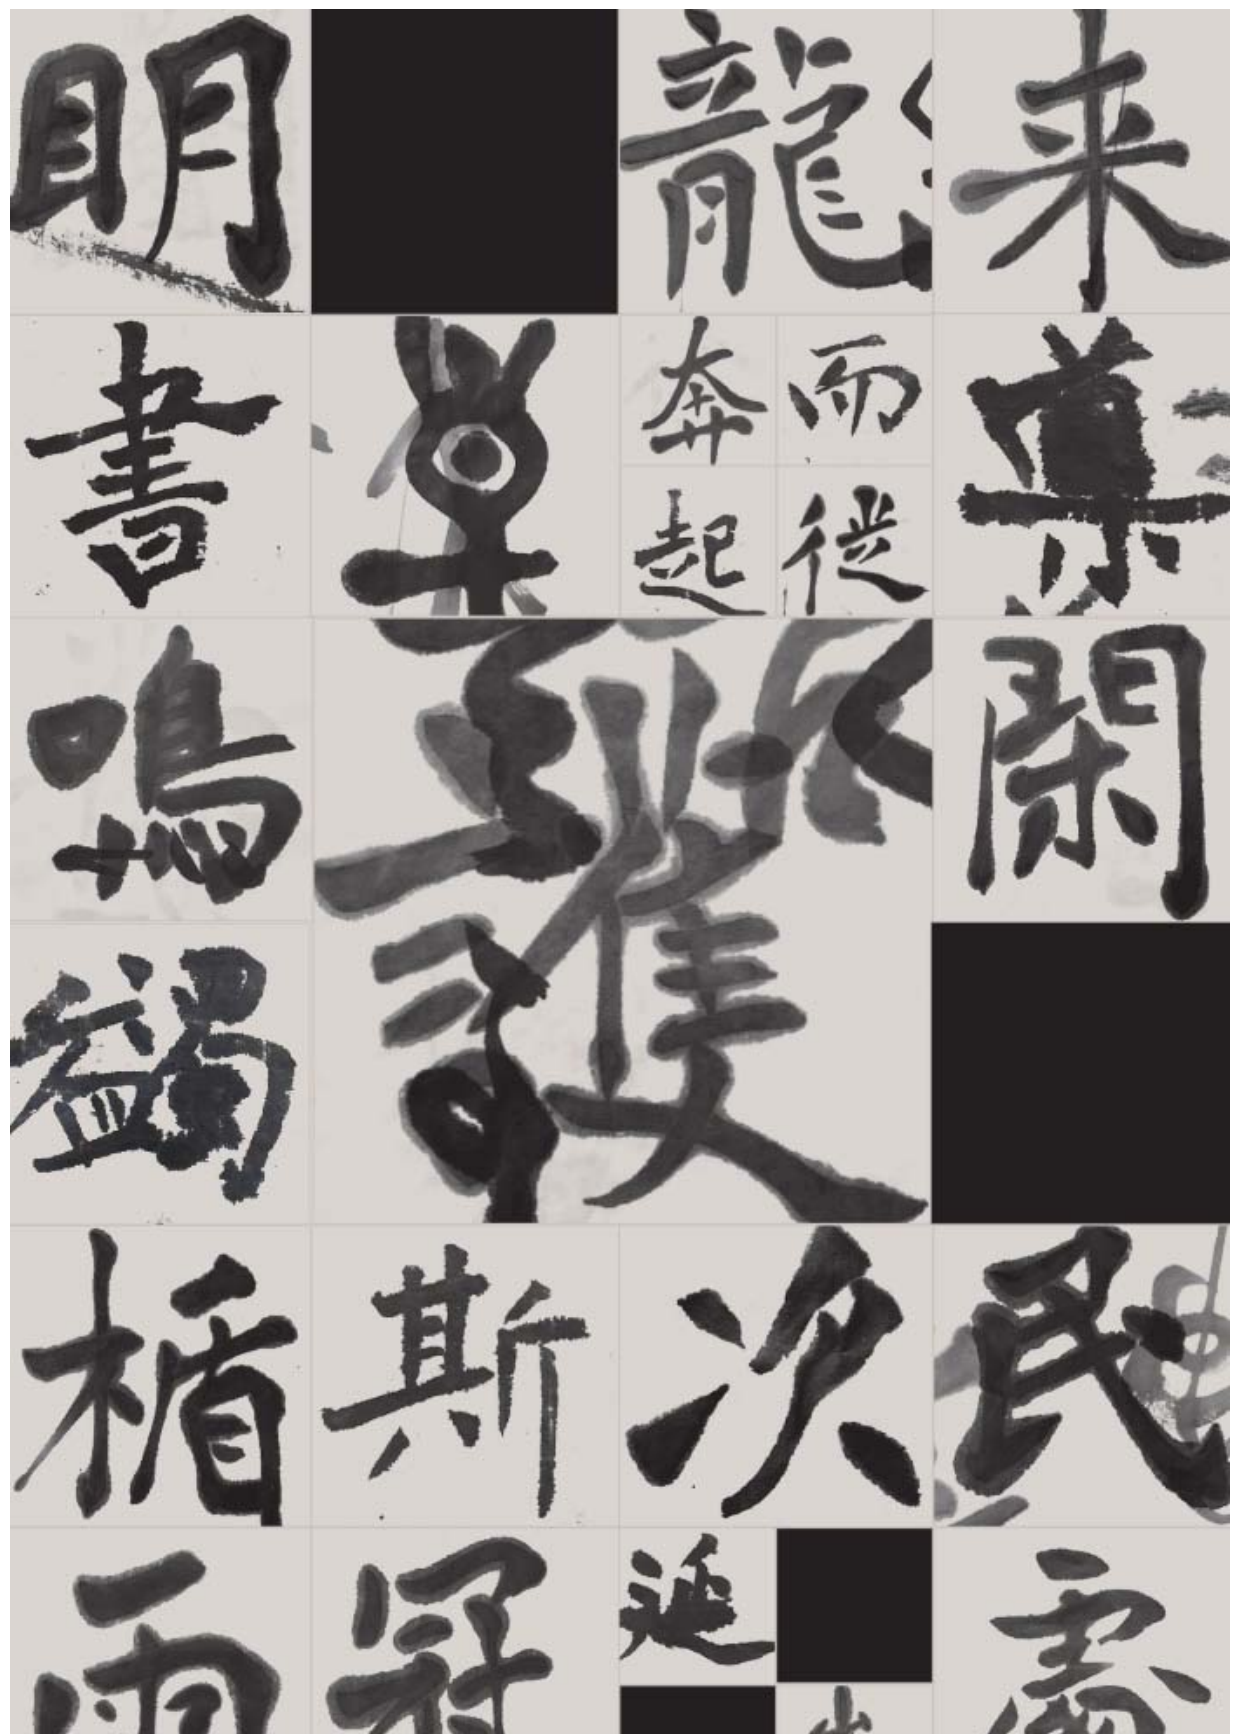 明 龍 来
書 奔 而
起 従 導
鳴 護 閑
蠲
楯 斯 次 民
雨 冠 延